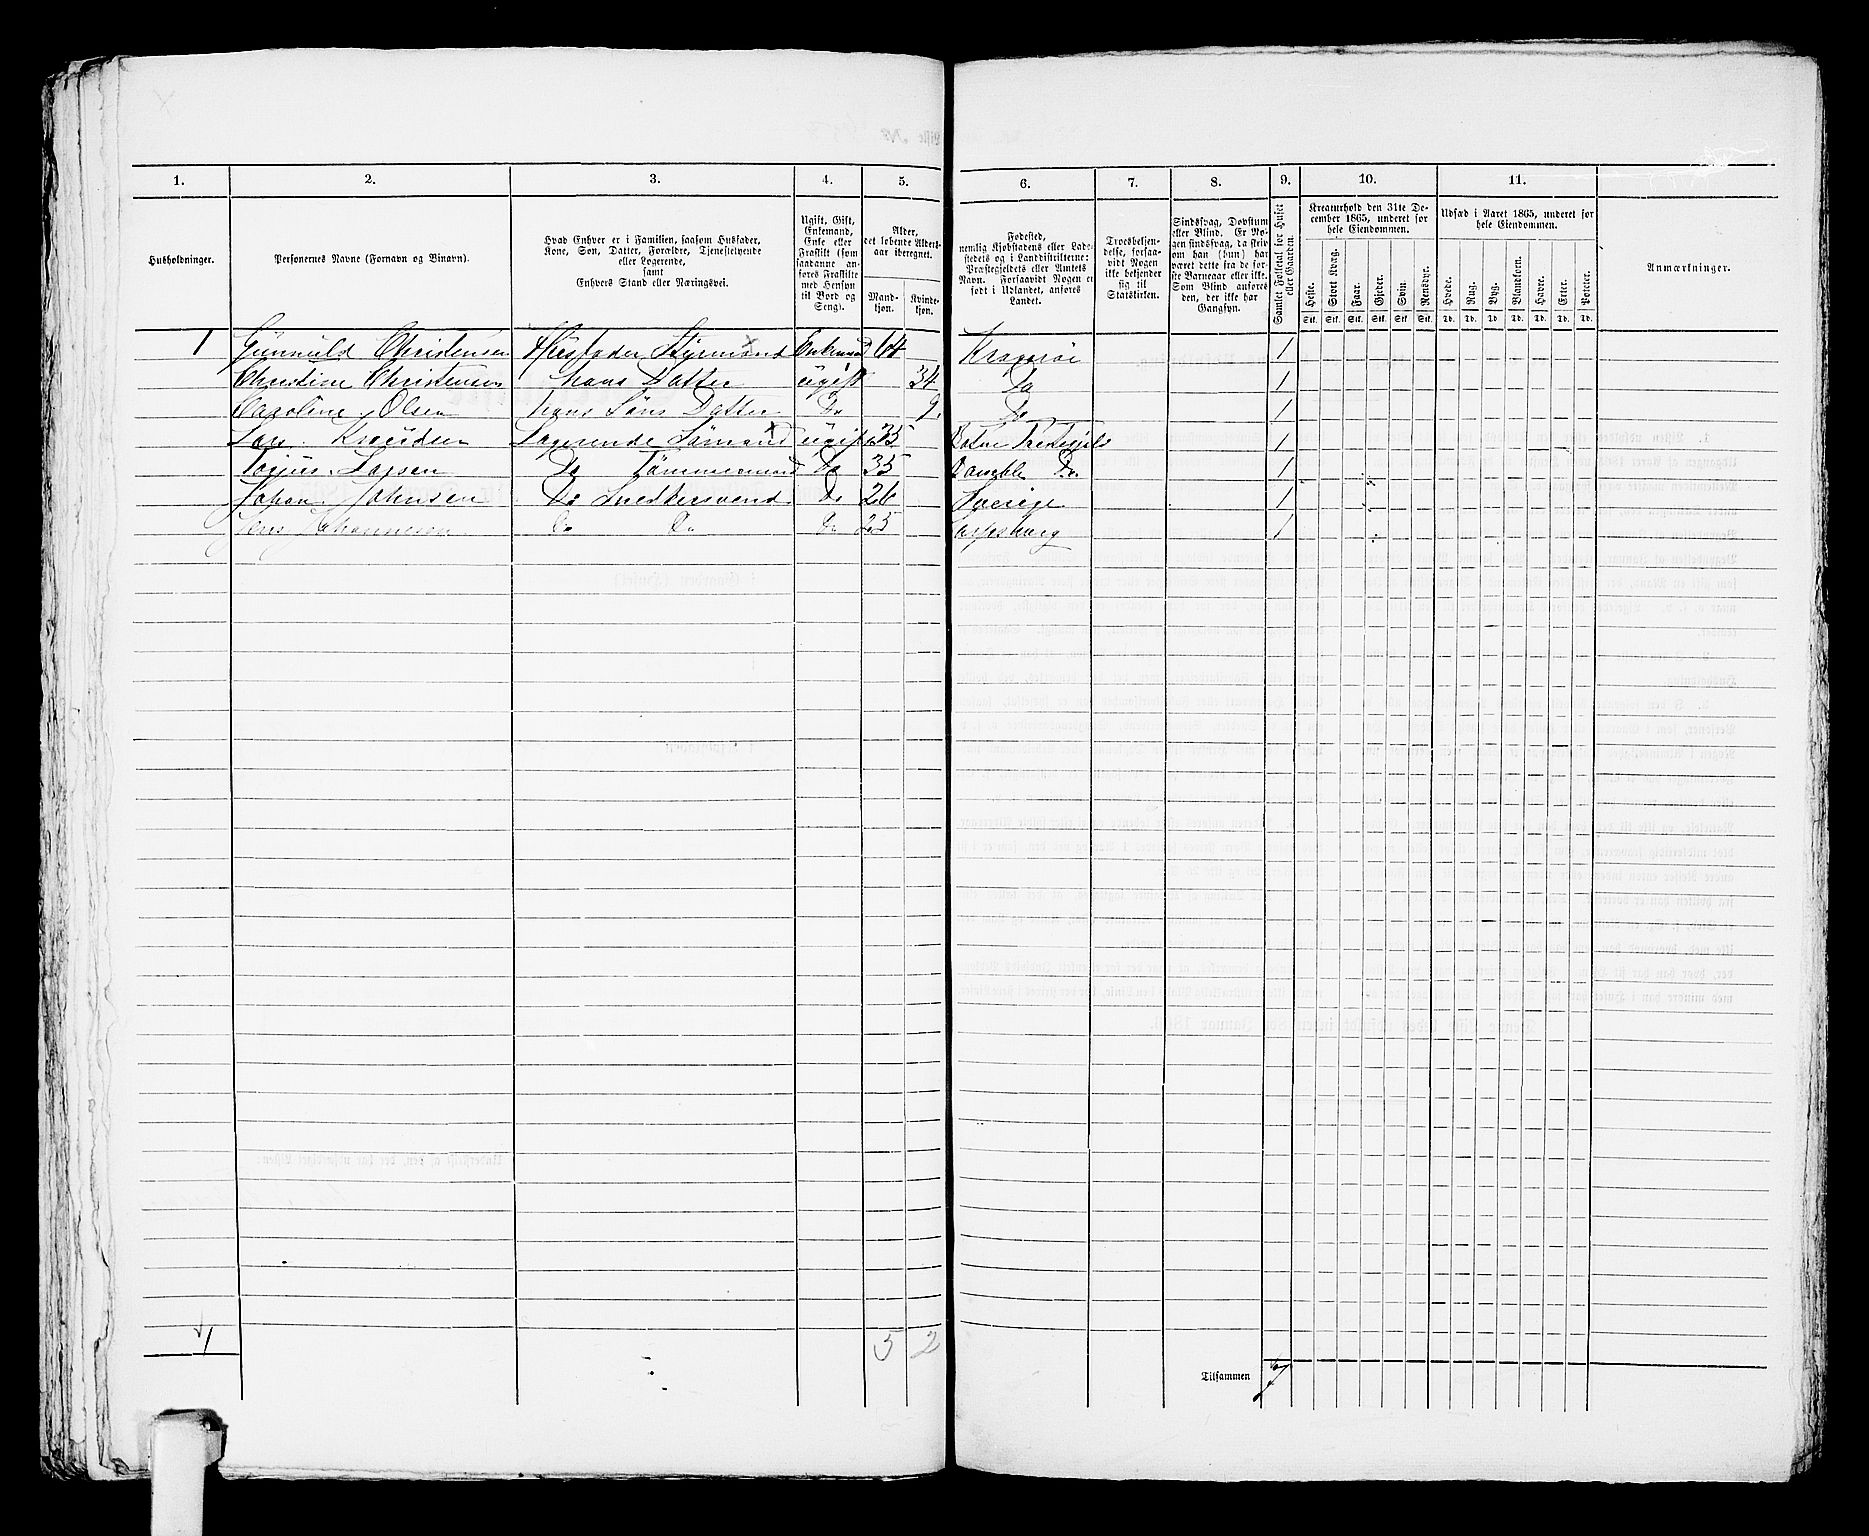 Liste No
1. 2. 3. 4. 5. 6. 7. 8. 9. 10. 11.
Husholdninger.
Personernes Navne (Fornavn og Binavn).
Hvad Enhver er i Familien, saasom Husfader,
Kone, Søn, Datter, Forældre, Tjenestetyende
eller Logerende,
samt
Enhvers Stand eller Næringsvei.
Ugift, Gift,
Enkemand,
Enke eller
Fraskilt (som
saadanne an-
føres Fraskilte
med Hensyn
til Bord og
Seng).
Alder,
det løbende Alders-
aar iberegnet.
Mand-
kjøn.
Kvinde-
kjøn.
Fødested,
nemlig Kjøbstadens eller Lade-
stedets og i Landdistrikterne:
Præstegjeldets eller Amtets
Navn. Forsaavidt Nogen er
født i Udlandet, anføres
Landet.
Troesbekjen-
delse, forsaa-
vidt Nogen
ikke bekjender
sig til
Statskirken.
Sindssvag, Døvstum
eller Blind. Er No-
gen sindssvag, da skriv
om han (hun) har
været dette fra de før-
ste Barneaar eller ikke.
Som Blind anføres
den, der ikke har
Gangsyn.
Samlet Folketal for Huset
eller Gaarden.
Kreaturhold den 31te De-
cember 1865, underet for
hele Eiendommen.
Heste. Stort Kvæg. Faar. Gjeder. Svin. Rensdyr.
Stk. Stk. Stk. Stk. Stk. Stk.
Udsæd i Aaret 1865, underet for
hele Eiendommen.
Hvede. Rug. Byg. Blandkorn. Havre. Erter. Poteter.
Td. Td. Td. Td. Td. Td. Td.
Anmærkninger.
1 Gunnuld Christensen Husfader Styrmand Enkemand 64 Kragerøe 1
Christine Christensen hans Datter ugift 34 Do 1
Caroline Olsen hans Søns Datter Do 9 Do 1
Lars Knudsen Logerende Sømand ugift 35 1
Torjus Larsen Do Tømmermand Do 35 Bamble Do 1
Johan Johnsen Do Snedkersvend Do 26 Sverige 1
Jens Johannesen Do Do Do 25 Sarpsborg 1
1 5 2
Tilsammen 7